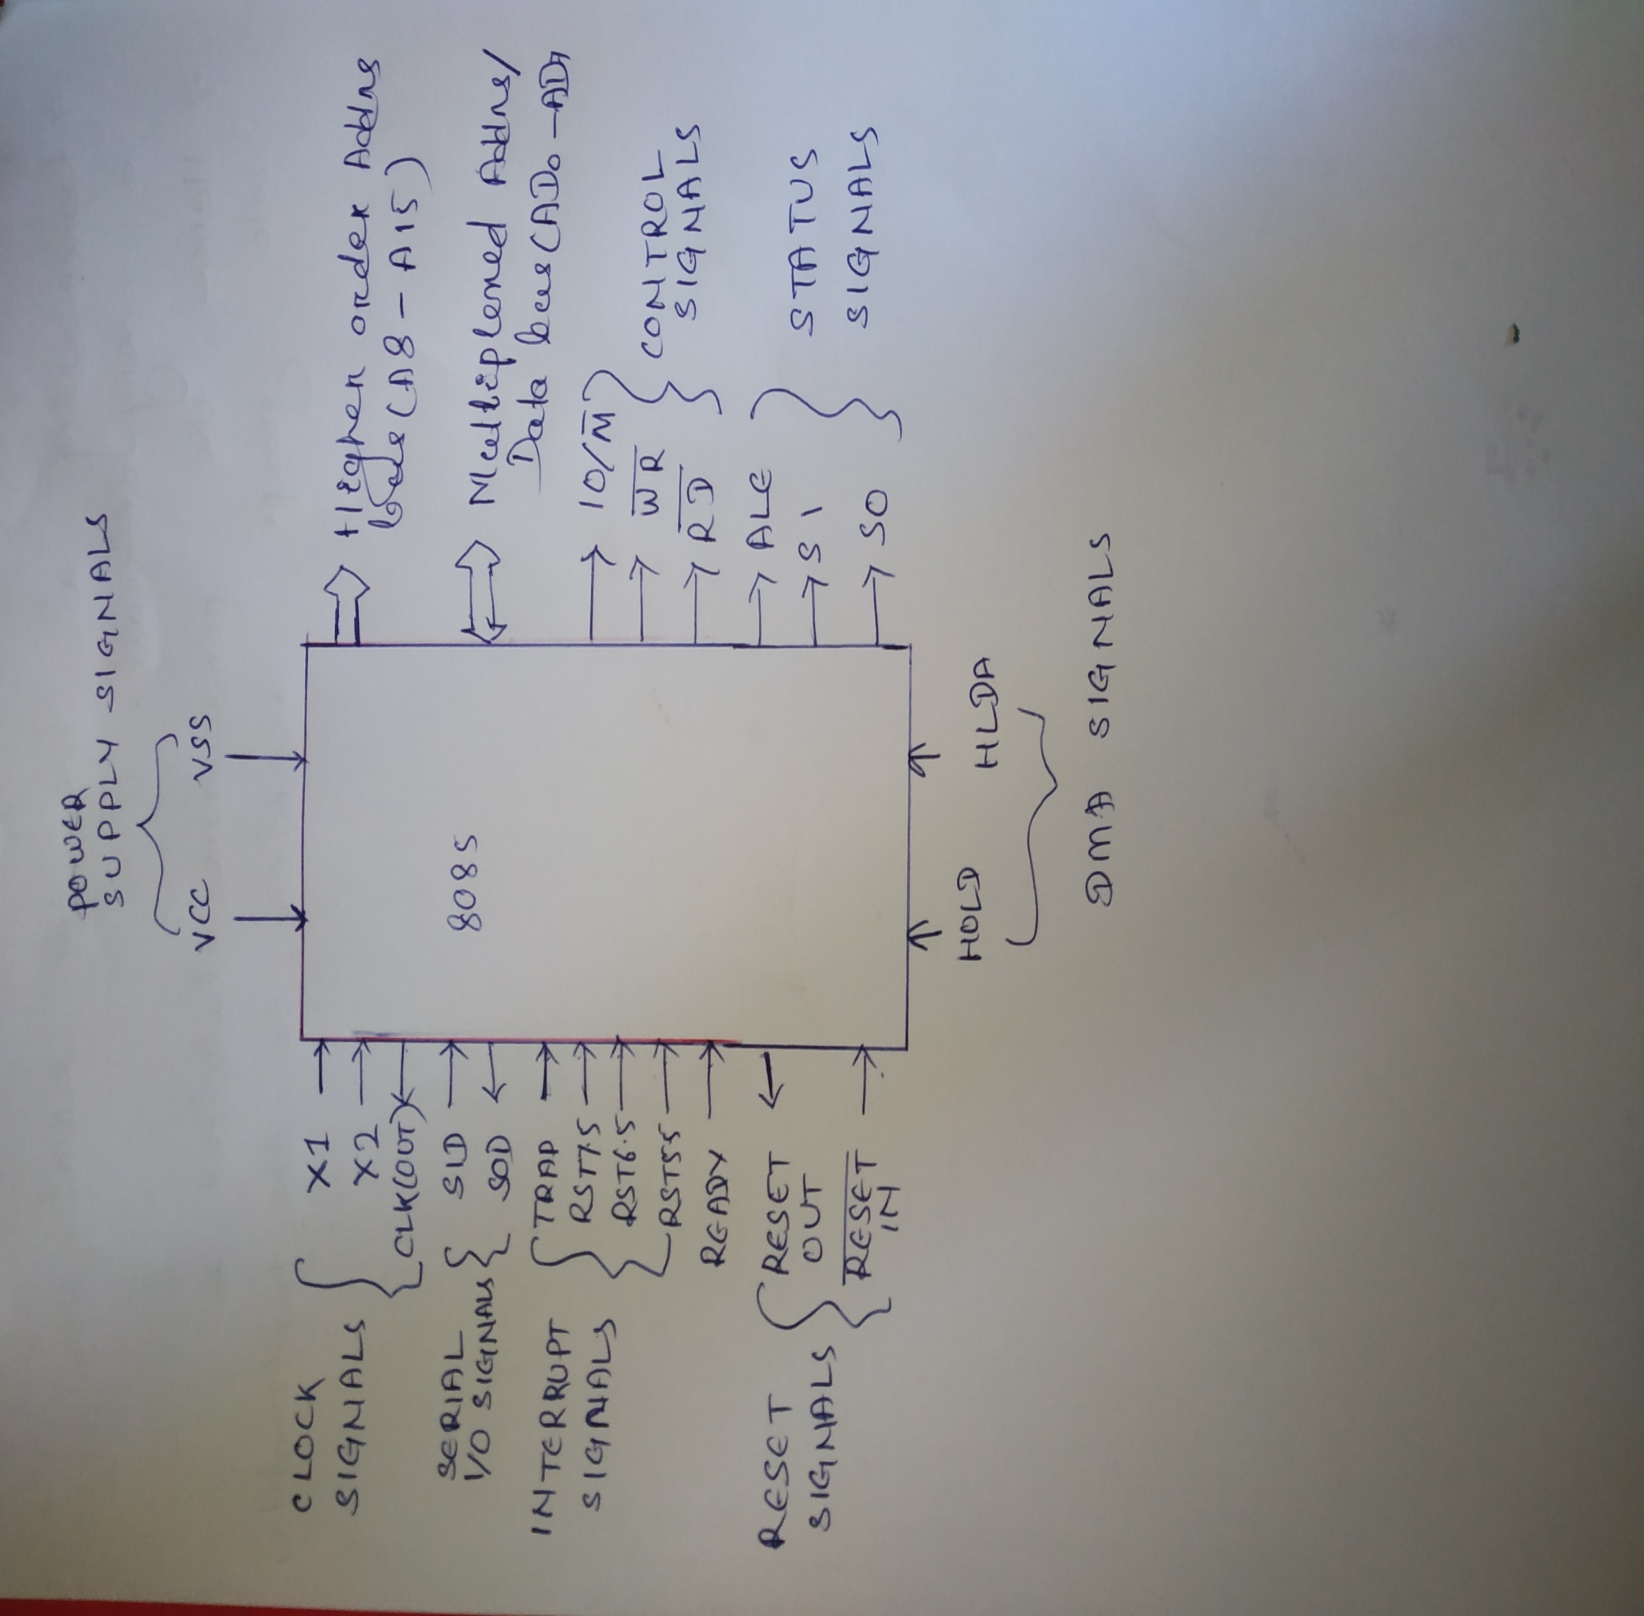 POWER
SUPPLY SIGNALS
VCC VSS
CLOCK
SIGNALS
X1
X2
CLK(OUT)
SERIAL
I/O SIGNALS
SID
SOD
INTERRUPT
SIGNALS
TRAP
RST7.5
RST6.5
RST5.5
READY
RESET
SIGNALS
RESET
OUT
RESET
IN
8085
Higher order Address
bus (A8 - A15)
Multiplexed Address/
Data bus (AD0 - AD7
IO/M̅
W̅R̅
R̅D̅
CONTROL
SIGNALS
ALE
S1
S0
STATUS
SIGNALS
HOLD HLDA
DMA SIGNALS